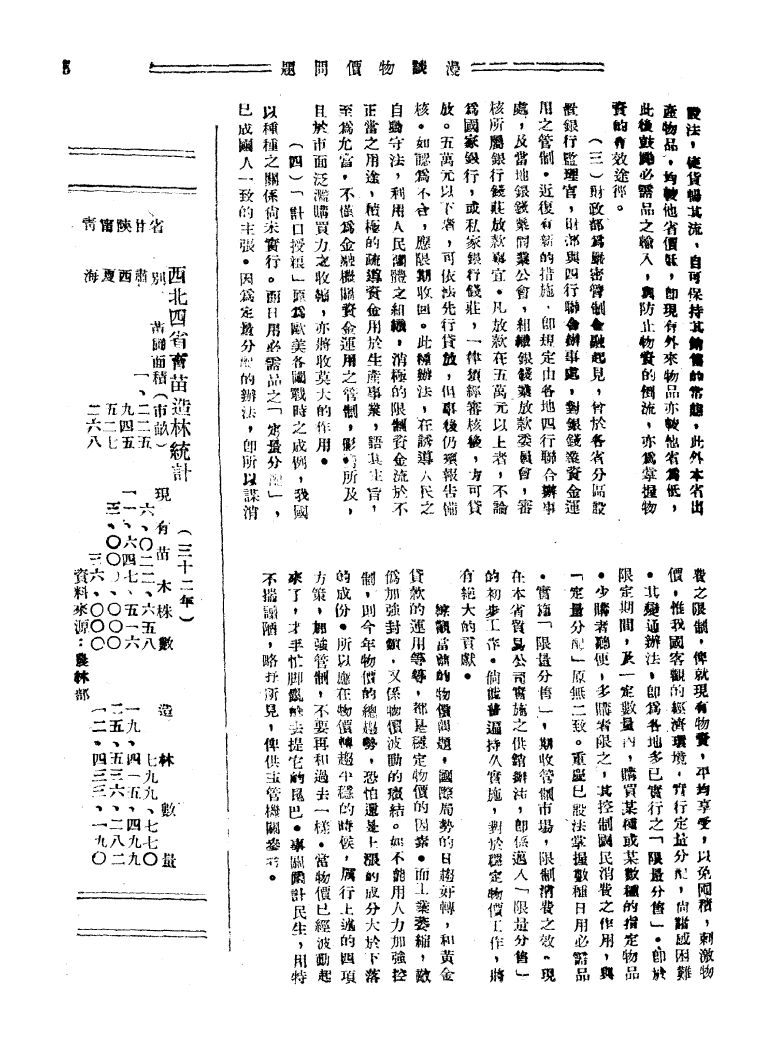 漫談物價問題
設法，使貨暢其流，自可保持其銷售的常態，此外本省出
產物品，均較他省價低，即現有外來物品亦較他省為低，
此後鼓勵必需品之輸入，與防止物資的倒流，亦為掌握物
資的有效途徑。
（三）財政部為嚴密管制金融起見，曾於各省分區設
置銀行監理官，由部與四行聯合辦事處，對銀錢業資金運
用之管制。近復有新的措施，即規定由各地四行聯合辦事
處，及當地銀錢業同業公會，組織銀錢業放款委員會，審
核所屬銀行錢莊放款事宜。凡放款在五萬元以上者，不論
為國家銀行，或私家銀行錢莊，一律須經審核後，方可貸
放。五萬元以下者，可依法先行貸放，但事後仍須報告備
核。如認為不合，應限期收回。此種辦法，在誘導人民之
自動守法，利用人民團體之組織，消極的限制資金流於不
正當之用途，積極的疏導資金用於生產事業，語其主旨，
至為允當。不僅為金融機關資金運用之管制，影響所及，
且於市面泛濫購買力之收縮，亦將收莫大的作用。
（四）「計口授糧」原為歐美各國戰時之成例，我國
以種種之關係尚未實行。而日用必需品之「定量分配」，
已成國人一致的主張。因為定量分配的辦法，即所以謀消
費之限制，俾就現有物資，平均享受，以免囤積，刺激物
價，惟我國客觀的經濟環境，實行定量分配，尚諸感困難
。其變通辦法，即為各地多已實行之「限量分售」。即於
限定期間，及一定數量內，購買某種或某數種的指定物品
。少購者聽便，多購者限之，其控制國民消費之作用，與
「定量分配」原無二致。重慶已設法掌握數種日用必需品
。實施「限量分售」，期收管制市場，限制消費之效。現
在本省貿易公司實施之供銷辦法，即係邁入「限量分售」
的初步工作。倘能普遍持久實施，對於穩定物價工作，將
有絕大的貢獻。
綜觀當前的物價問題，國際局勢的日趨好轉，和黃金
貸款的運用等等，都是穩定物價的因素。而工業萎縮，敵
偽加強封鎖，又係物價波動的癥結。如不能用人力加強控
制，則今年物價的總趨勢，恐怕還是上漲的成分大於下落
的成份。所以應在物價轉趨平穩的時候，厲行上述的四項
方策，加強管制，不要再和過去一樣。當物價已經波動起
來了，才手忙脚亂的去提它的尾巴。事關國計民生，用特
不揣譾陋，略抒所見，俾供主管機關參考。
西北四省育苗造林統計
（三十二年）
省別 苗圃面積（市畝） 現有苗木株數 造林數量
甘肅 一、二二五 六、〇二二、六五八
陝西 九四五 一一、六四七、五一六
寧夏 五二七 三、〇〇〇、〇〇〇
青海 二六八 三六、〇〇〇
資料來源：農林部